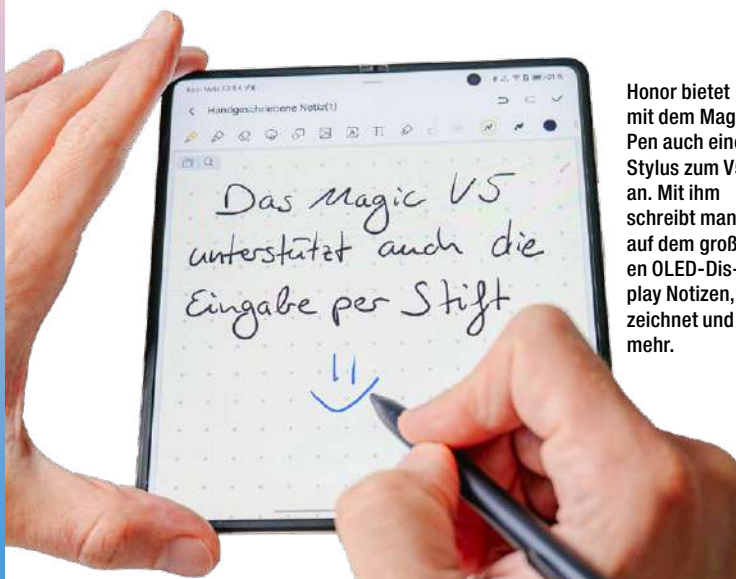 Handgeschriebene Notiz(1)
Das Magic V5
unterstützt auch die
Eingabe per Stift
Honor bietet
mit dem Mag
Pen auch eine
Stylus zum V5
an. Mit ihm
schreibt man
auf dem groß
en OLED-Dis-
play Notizen,
zeichnet und
mehr.